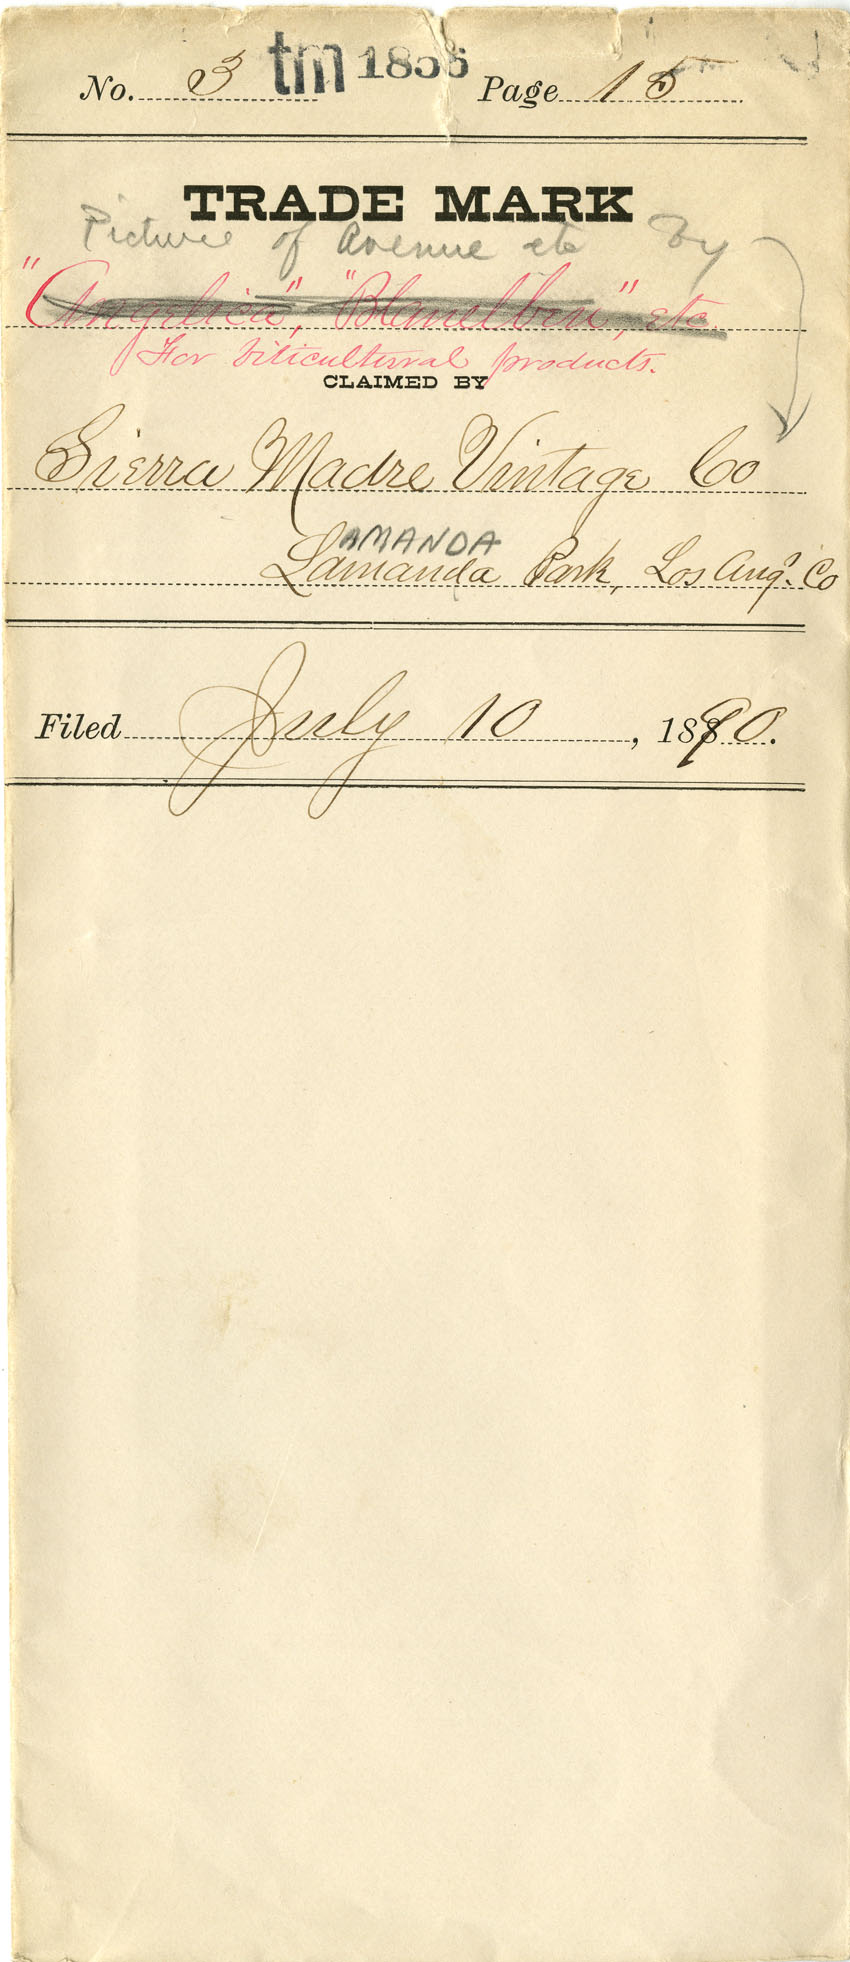 No. 3 tm 1856 Page 15
TRADE MARK
Picture of Avenue etc By
"Angelica", "Blanelben", etc
For Viticultural products.
CLAIMED BY
Sierra Madre Vintage Co
AMANDA
Lamanda Park, Los Ang's. Co
Filed July 10, 1890.